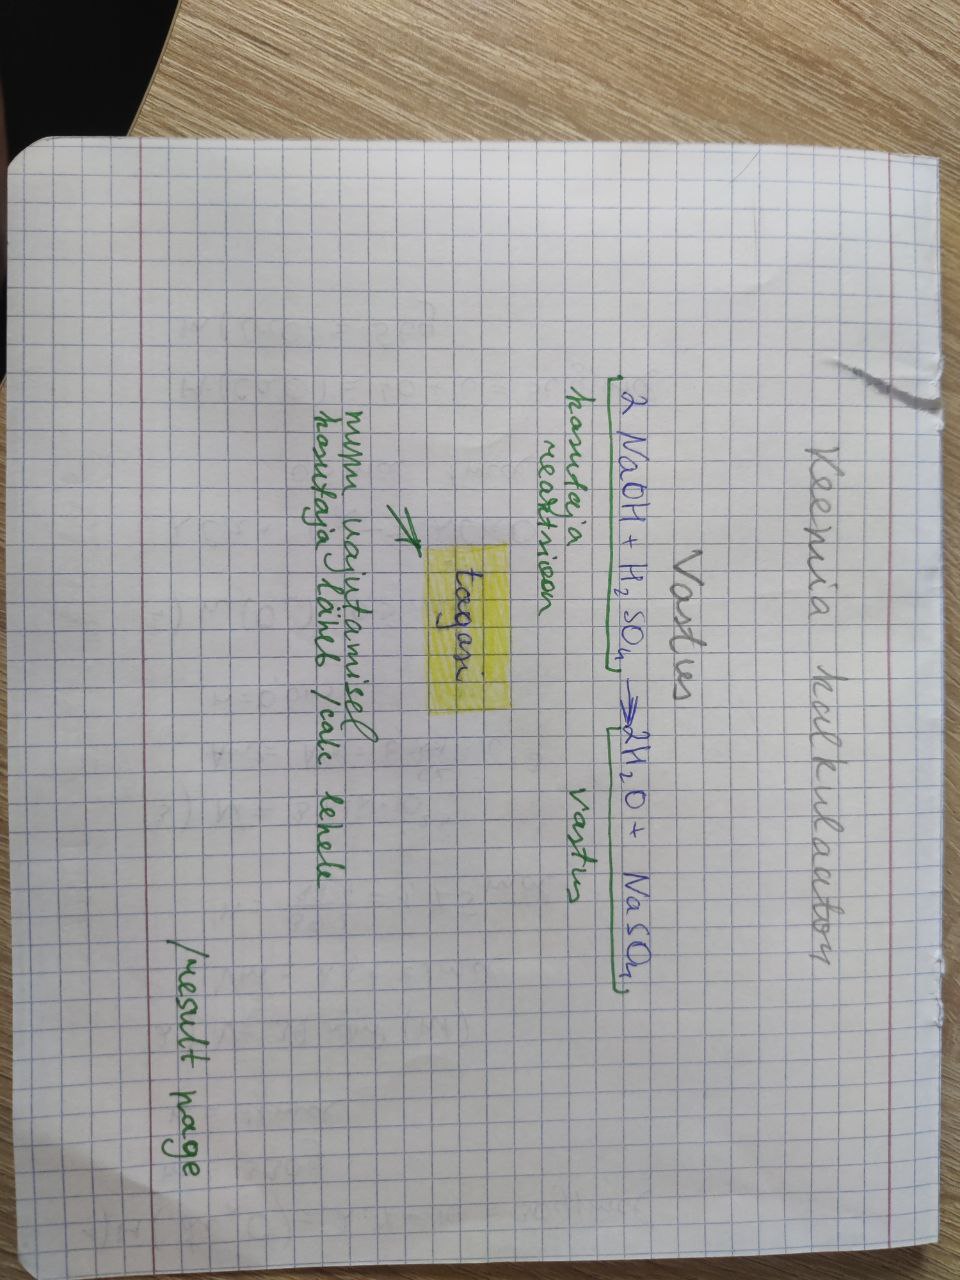 Keemia kalkulaator
Vastus
2 NaOH + H₂SO₄ → 2H₂O + NaSO₄
kasutaja vastus
reaktsioon
tagasi
nupu vajutamisel
kasutaja läheb /calc lehele
/result page